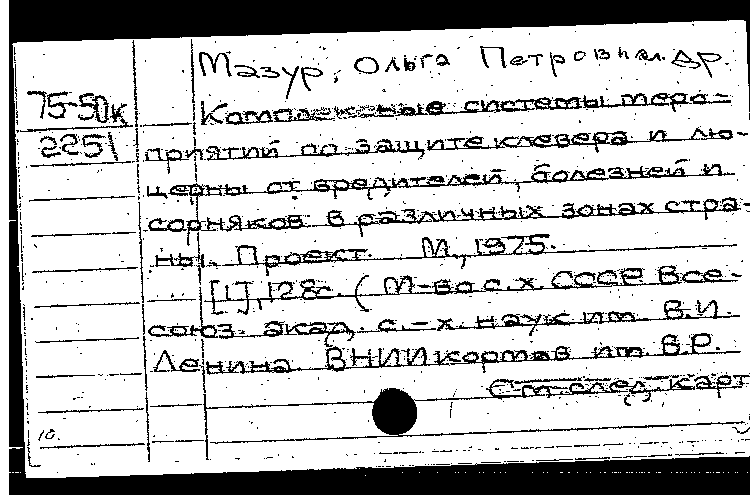 Мазур, Ольга Петровна и др.
75-50к
2251
Комплексные системы меро-
приятий по защите клевера и лю-
церны от вредителей, болезней и
сорняков в различных зонах стра-
ны. Проект. М., 1975.
[1], 128с. (М-во с.х. СССР. Все-
союз. акад. с.-х. наук им. В.И.
Ленина. ВНИИ кормов им. В.Р.
См. след. карт
10.